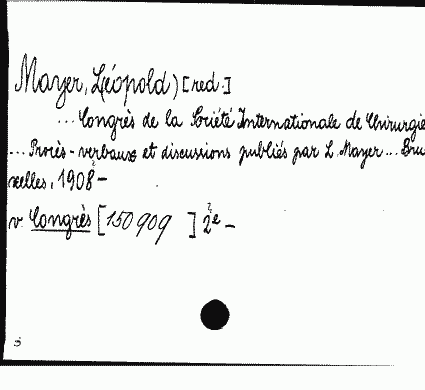 Mayer, Léopold) [red.]
... Congrès de la Société Internationale de Chirurgie
... Procès-verbaux et discussions publiés par L. Mayer... Bru
xelles, 1908-
v. Congrès [150909 ] 2e -